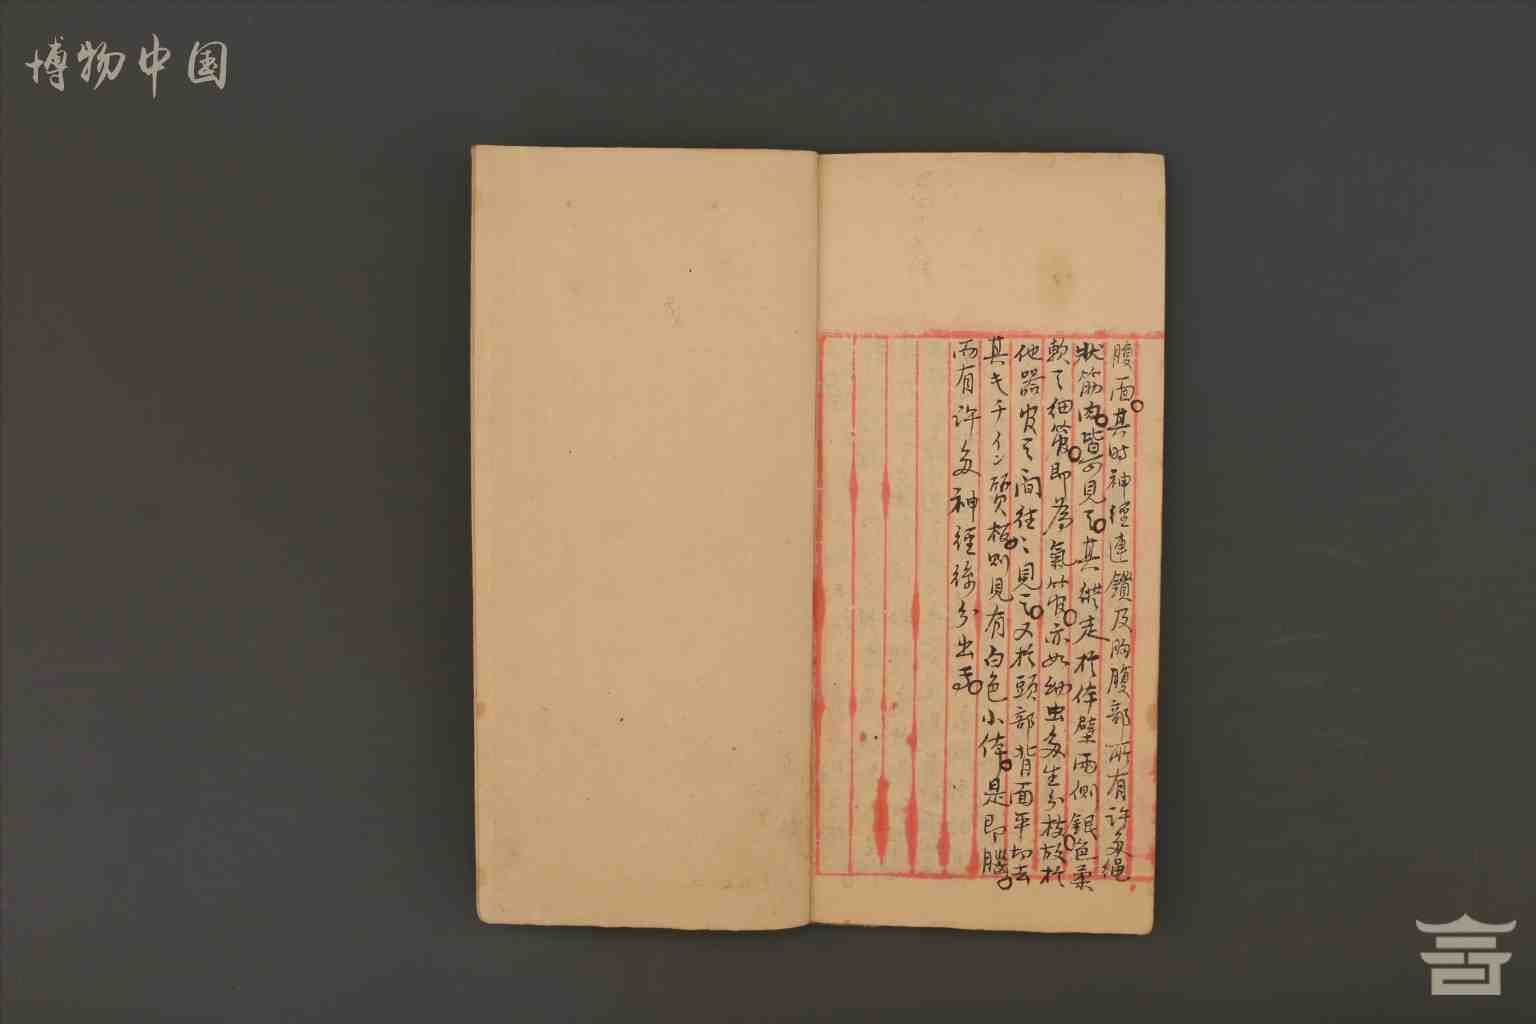 博物中国
腹面。其時神經連鎖及胸腹部所有許多繩
狀筋肉。皆可見之。其縱走於体壁两側。銀色柔
軟之細管。即為氣管。亦如幼虫多生分枝放於
他器官之間往々見之。又於頭部背面平切去
其キチイン質板。則見有白色小体。是即腦。
而有許多神經線分出焉。